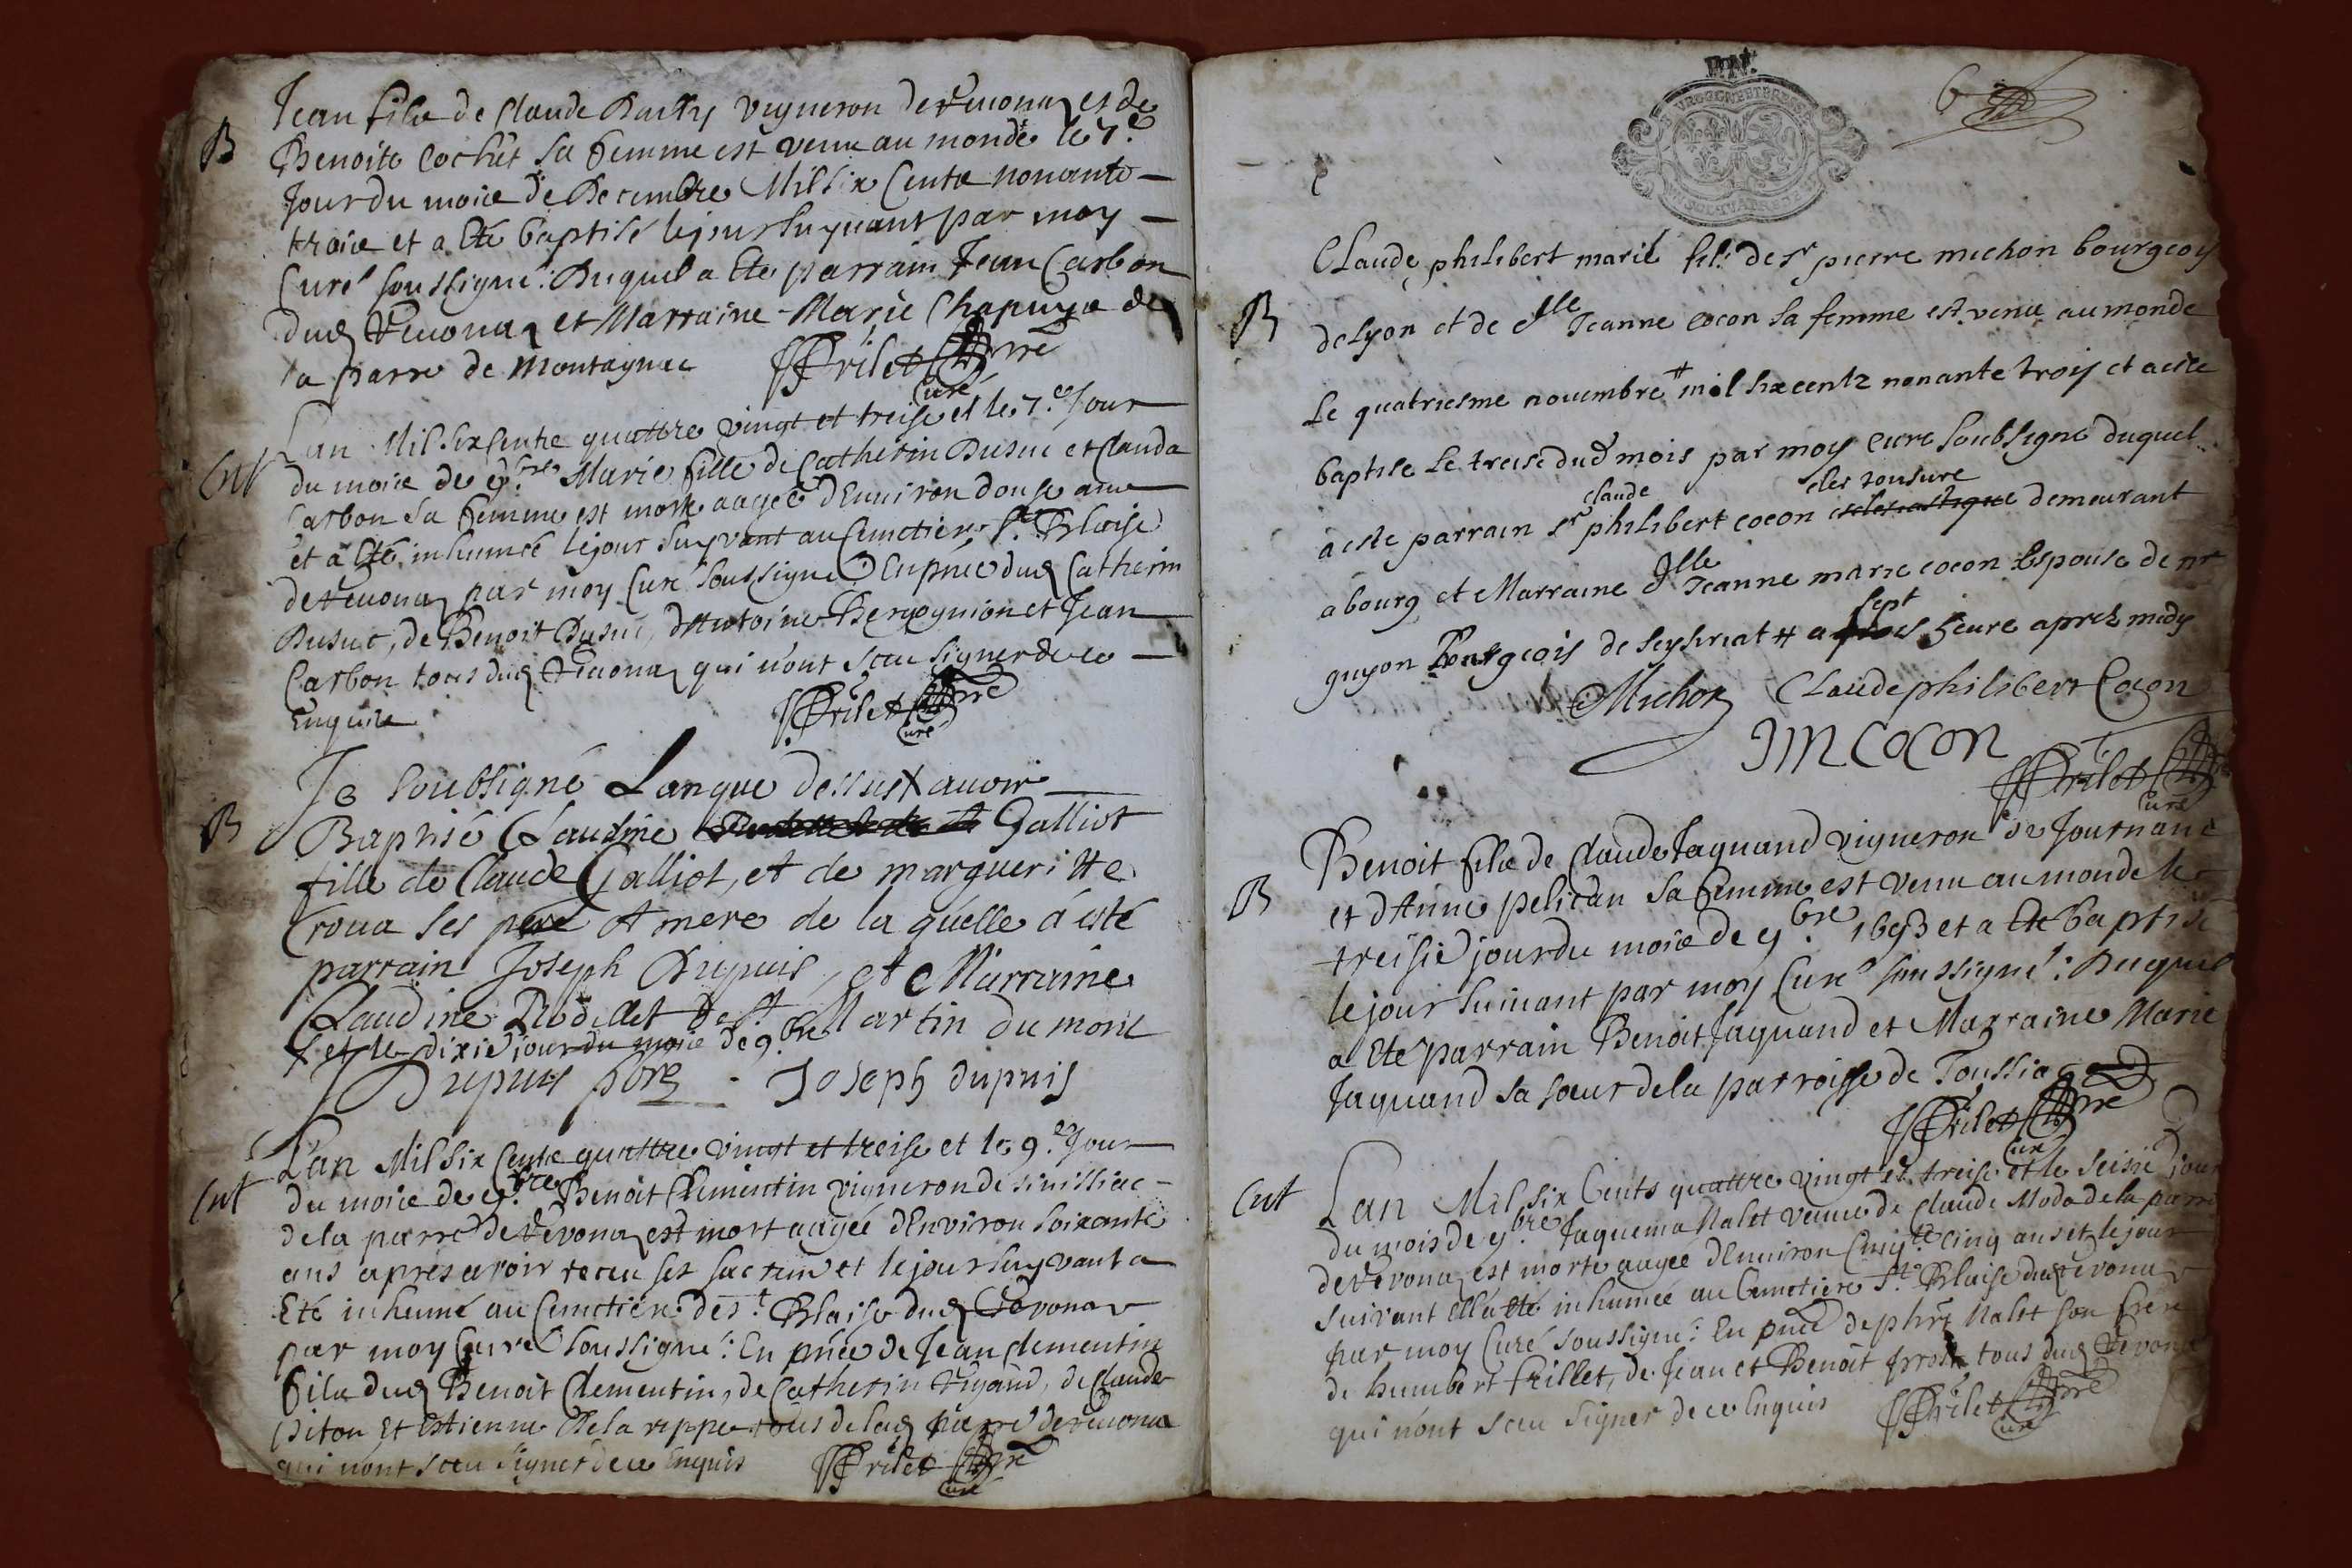 B
Jean fils de Claude vigneron de Reuonaz et de
Benoite Cochet sa femme est venu au monde le 7.e
Jour du mois de Decembre Mil six Cents nonante
trois et a Eté baptisé le jour suyuant par moy
Curé soussigné: Duquel a Eté parrain Jean Carbon
dud Reuonaz et Marraine Marie Chapuys de
la parre de Montagnac
Frilet pre
Curé
Ent
Lan Mil six Cents quattre vingt et treise et le 7.e Jour
du mois de 9.bre Marie fille de Catherin Dusuc et Clauda
Carbon sa femme est morte aagée dEnuiron douse ans
et a Eté inhumée le jour suyvant au Cimetiere St. Blaise
de Reuonaz par moy Curé soussigné En pnce dud Catherin
Dusuc, de Benoit Dusuc, dAntoine et Jean
Carbon tous dud Reuonaz qui n'ont sceu signer de ce
Enquis
Frilet pre
Curé
B
Je soubsigné Lan que dessus X auoir
Baptisé Claudine Galliot
fille de Claude Galliot, et de margueritte
Croua ses pere et mere de la quelle a esté
parrain Joseph Dupuis, et Marraine
Claudine de St Martin du mont
X et le dixie jour du mois de 9.bre
Dupuis pbre Joseph dupuis
Ent
Lan Mil six Cents quattre vingt et treise et le 9.e Jour
du mois de 9.bre Benoit Clementin vigneron de sinissiac
de la parre de Revonaz est mort aagée dEnviron soixante
ans apres avoir receu ses sacrem et le jour suyvant a
Eté inhumé au Cimetiere de St. Blaise dud Revonaz
par moy Curé soussigné: En pnce de Jean Clementin
fils dud Benoit Clementin, de Catherin, de Claude
Piton Et Estienne De la rippe tous de lad parre de Reuonaz
qui n'ont sceu signer de ce Enquis
Frilet pre
Curé
6
B
CLaude philibert marie fils de sr pierre michon bourgeoy
de Lyon et de dlle Jeanne cocon sa femme est venu au monde
Le quatriesme nouembre # mil six centz nonante troys et a este
baptise Le treise dud mois par moy cure soubsigne duquel
claude cler tonsure
a este parrain sr philibert cocon eclesiastique demeurant
a bourg et Marraine dlle Jeanne marie cocon Espouse de mr
guyon Bourgeois de seysiriat # a sept heure aprez midy
Michon CLaude philibert Cocon
JM COCON
Frilet
Curé
B
Benoit fils de Claude Jaquand vigneron de Journans
et dAnne pelican sa femme est venu au monde le
treisie jour du mois de 9.bre 1693 et a Eté baptisé
le jour suivant par moy Curé soussigné: Duquel
a Eté parrain Benoit Jaquand et Marraine Marie
Jaquand sa soeur de la parroisse de Toussia
Frilet pre
Curé
Ent
Lan Mil six Cents quattre vingt et treise et le seisie jour
du mois de 9.bre Jaquema Nalet veuue de Claude Modo de la parre
de Revonaz est morte aagee dEnuiron Cinqte cinq ans et le jour
suivant Ell'a Eté inhumée au Cimetiere St. Blaise dud Revonaz
par moy Curé soussigné: En pnce de phirt Nalet son frere
de humbert frillet, de Jean et Benoit tous dud Revonaz
qui n'ont sceu signer de ce Enquis
Frilet pre
Curé